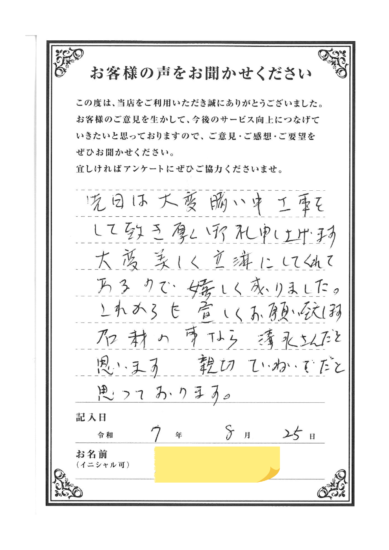 お客様の声をお聞かせください
この度は、当店をご利用いただき誠にありがとうございました。
お客様のご意見を生かして、今後のサービス向上につなげて
いきたいと思っておりますので、ご意見・ご感想・ご要望を
ぜひお聞かせください。
宜しければアンケートにぜひご協力くださいませ。
先日は大変 中工事を
して 厚い御礼申し上げます
大変美しく立派にしてくれて
あるので嬉しく成りました。
これからも宜しくお願い致します
石材の事なら さんだと
思います 親切 ていねいだと
思っております。
記入日
令和 7 年 8 月 25 日
お名前
(イニシャル可)